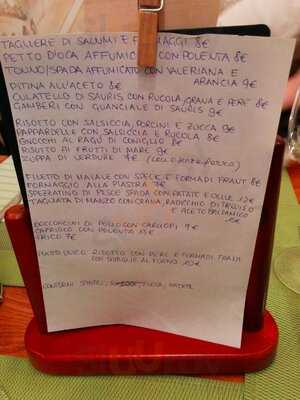 TAGLIERE DI SALUMI E FORMAGGI 8€
PETTO D'OCA AFFUMICATO CON POLENTA 8€
TONNO/SPADA AFFUMICATO CON VALERIANA E
ARANCIA 9€
PITINA ALL'ACETO 8€
CULATELLO DI SAURIS CON RUCOLA, GRANA E PERE 8€
GAMBERI CON GUANCIALE DI SAURIS 9€
RISOTTO CON SALSICCIA, PORCINI E ZUCCA 9€
PAPPARDELLE CON SALSICCIA E RUCOLA 8€
GNOCCHI AL RAGÙ DI CONIGLIO 8€
RISOTTO AI FRUTTI DI MARE 9€
ZUPPA DI VERDURE 7€
FILETTO DI MAIALE CON SPECK E FORMADI FRANT 8€
FORMAGGIO ALLA PIASTRA 7€
SPEZZATINO DI PESCE SPADA CON PATATE E OLIVE 12€
TAGLIATA DI MANZO CON GRANA, RADICCHIO DI TREVISO
E ACETO BALSAMICO
BOCCONCINI DI POLLO CON CARCIOFI 9€
CAPRIOLO CON POLENTA
FRICO 7€
PIATTO UNICO: RISOTTO CON PERE E FORMADI FRANT
CON AL FORNO
CONTORNI: SPINACI, PATATE